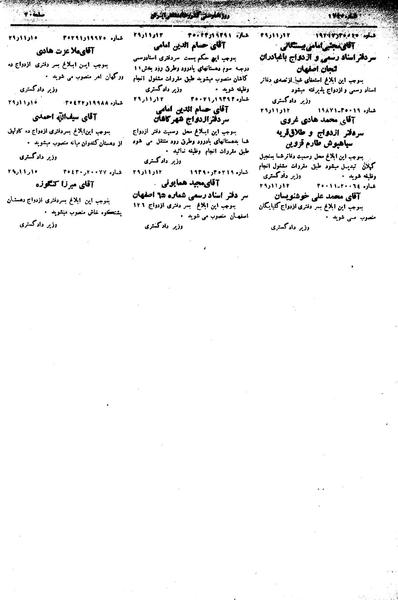 صفحه ۲۰
شماره ۳۰۰۲۷-۱۹۲۷۳ ۲۹ر۱۱ر۱۲
آقای مجتبی امامی بیستگانی
سردفتر اسناد رسمی و ازدواج باغبادران
لنجان اصفهان
بموجب این ابلاغ استعفای شما از تصدی دفاتر
اسناد رسمی و ازدواج پذیرفته میشود
وزیر دادگستری
شماره ۳۰۰۱۹-۱۹۸۷۱ ۲۹ر۱۱ر۱۲
آقای محمد هادی غروی
سردفتر ازدواج و طلاق قریه
سیاهپوش طارم قزوین
بموجب این ابلاغ محل رسمیت دفتر شما بمنجیل
گیلان تبدیل میشود طبق مقررات مشغول انجام
وظیفه شوید
وزیر دادگستری
شماره ۲۰۰۶۴-۳۰۰۱۱ ۲۹ر۱۱ر۱۲
آقای محمد علی خوشنویسان
بموجب این ابلاغ بسردفتری ازدواج گلپایگان
منصوب می شوید
وزیر دادگستری
شماره ۱۹۳۹۱-۳۰۰۲۳ ۲۹ر۱۱ر۱۲
آقای حسام الدین امامی
بموجب این حکم بسمت سردفتری اسنادرسمی
درجه سوم دهستانهای بادرود وطرق رود بخش ۱۱
کاشان منصوب میشوید طبق مقررات مشغول انجام
وظیفه شوید
وزیر دادگستری
شماره ۱۹۳۹۳-۳۰۰۲۱ ۲۹ر۱۱ر۱۲
آقای حسام الدین امامی
سردفتر ازدواج شهر کاشان
بموجب این ابلاغ محل رسمیت دفتر ازدواج
شما بدهستانهای بادرود وطرق رود منتقل می شود
طبق مقررات انجام وظیفه نمائید
وزیر دادگستری
شماره ۳۰۲۱۹-۱۹۳۹۰ ۲۹ر۱۱ر۱۲
آقای مجید همایونی
سردفتر اسناد رسمی شماره ۶۵ اصفهان
بموجب این ابلاغ بسردفتری ازدواج ۱۲۶
اصفهان منصوب می شوید
وزیر دادگستری
شماره ۱۹۹۷۰-۳۰۳۹۱ ۲۹ر۱۱ر۱۵
آقای ملا عزت هادی
بموجب این ابلاغ بسردفتری ازدواج ده
ورگهان اهر منصوب می شوید
وزیر دادگستری
شماره ۱۹۹۸۸-۳۰۴۲۲ ۲۹ر۱۱ر۱۵
آقای سیف الله احمدی
بموجب این ابلاغ بسردفتری ازدواج ده
از دهستان کندوان میانه منصوب میشوید
وزیر دادگستری
شماره ۲۰۰۷۷-۳۰۴۳۰ ۲۹ر۱۱ر۱۵
آقای میرزا کنگوزه
بموجب این ابلاغ بسردفتری ازدواج دهستان
پشتکوه خاش منصوب میشوید
وزیر دادگستری